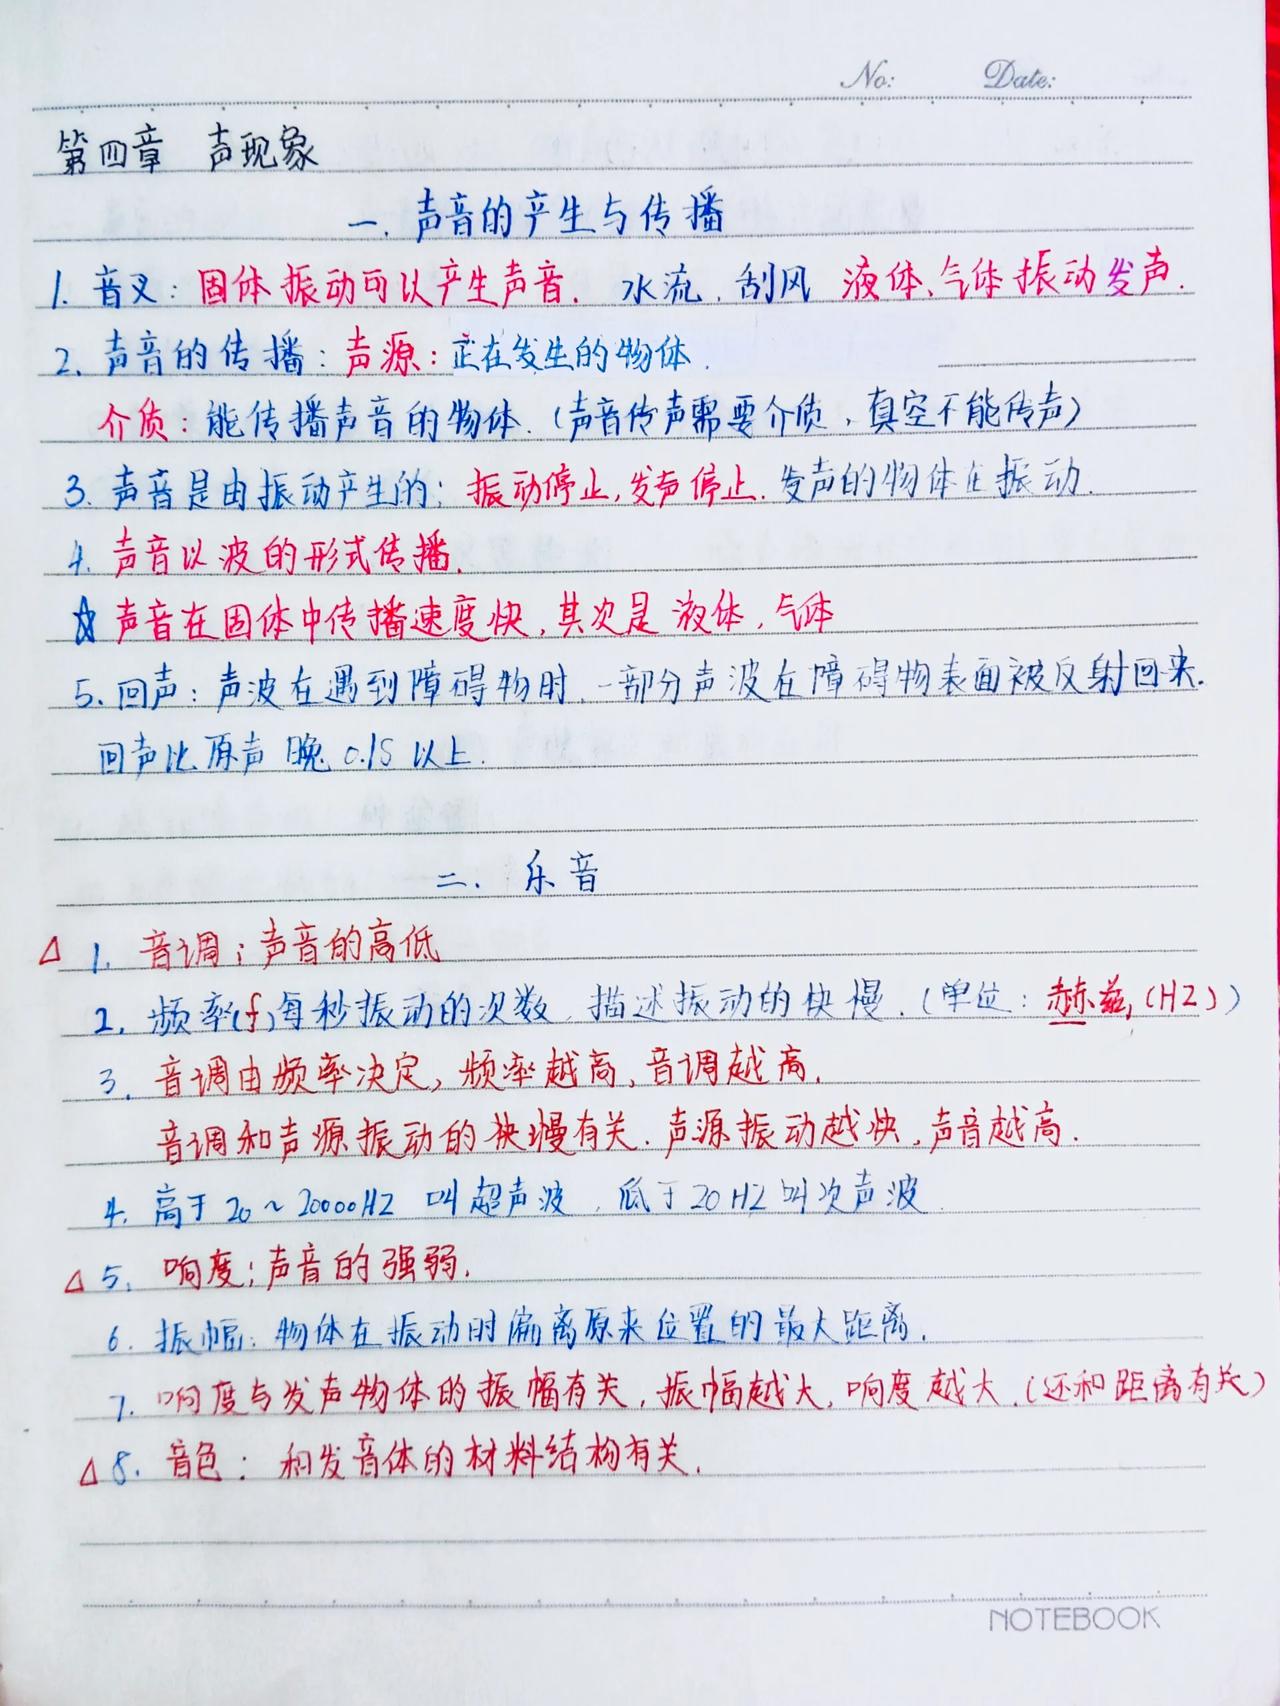 No: Date:
第四章 声现象
一. 声音的产生与传播
1. 音叉: 固体振动可以产生声音. 水流, 刮风 液体、气体振动发声.
2. 声音的传播: 声源: 正在发生的物体.
介质: 能传播声音的物体. (声音传声需要介质, 真空不能传声)
3. 声音是由振动产生的; 振动停止, 发声停止. 发声的物体在振动.
4. 声音以波的形式传播.
☆ 声音在固体中传播速度快, 其次是液体, 气体
5. 回声: 声波在遇到障碍物时, 一部分声波在障碍物表面被反射回来.
回声比原声晚 0.1S 以上.
二. 乐音
△ 1. 音调; 声音的高低
2. 频率(f)每秒振动的次数, 描述振动的快慢. (单位: 赫兹, (HZ))
3. 音调由频率决定, 频率越高, 音调越高.
音调和声源振动的快慢有关. 声源振动越快, 声音越高.
4. 高于20~20000HZ 叫超声波, 低于20HZ叫次声波
△ 5. 响度; 声音的强弱.
6. 振幅: 物体在振动时偏离原来位置的最大距离.
7. 响度与发声物体的振幅有关, 振幅越大, 响度越大. (还和距离有关)
△ 8. 音色: 和发音体的材料结构有关.
NOTEBOOK